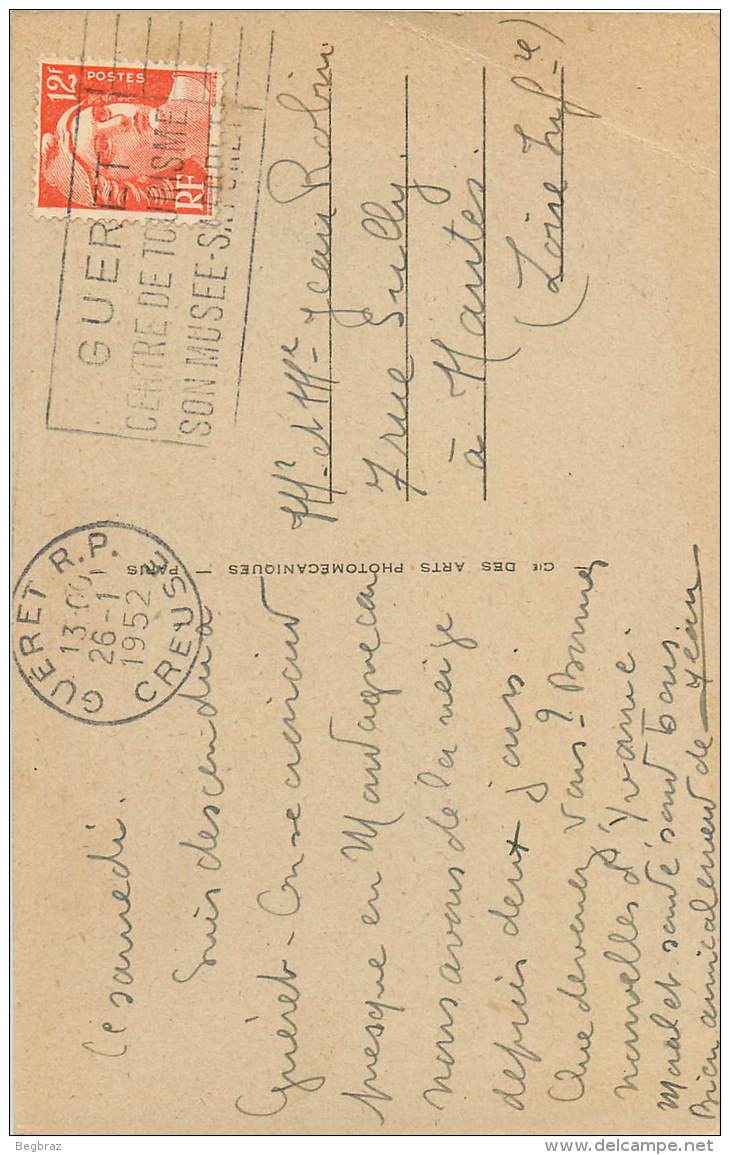 Ce samedi.
Suis descendu a
Guéret - On se croirait
presque en
nous avons de la neige
depuis deux jours.
Que devenez vous? Bonnes
nouvelles d'Yvonne.
Moral et santé sont bons
Bien amicalement de Jean
CIE DES ARTS PHOTOMÉCANIQUES — PARIS
GUÉRET R.P.
13:00
26-1
1952
CREUSE
GUERET
CENTRE DE TOURISME
SON MUSEE-SA FORET
POSTES
12F
RF
Mr et Mme Jean Robin
7 rue Sully.
à Nantes.
(Loire Infre)
Begbraz
delcampe.net